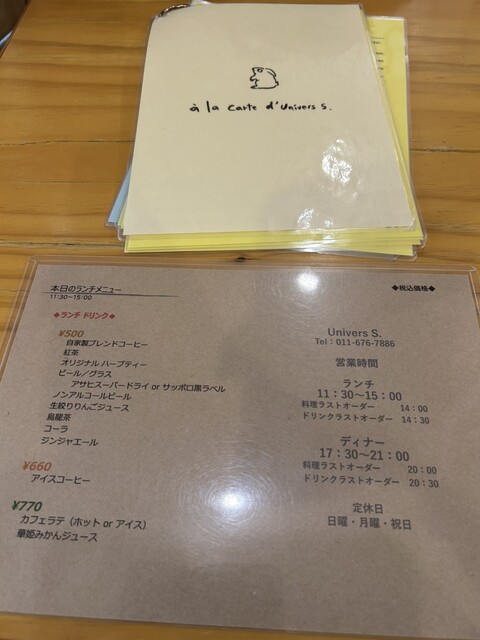 à la carte d'Univers S.
本日のランチメニュー
11:30~15:00
◆税込価格◆
◆ランチ ドリンク◆
¥500
自家製ブレンドコーヒー
紅茶
オリジナル ハーブティー
ビール/グラス
アサヒスーパードライ or サッポロ黒ラベル
ノンアルコールビール
生絞りりんごジュース
烏龍茶
コーラ
ジンジャエール
¥660
アイスコーヒー
¥770
カフェラテ（ホット or アイス）
華姫みかんジュース
Univers S.
Tel：011-676-7886
営業時間
ランチ
11：30～15：00
料理ラストオーダー 14：00
ドリンクラストオーダー 14：30
ディナー
17：30～21：00
料理ラストオーダー 20：00
ドリンクラストオーダー 20：30
定休日
日曜・月曜・祝日